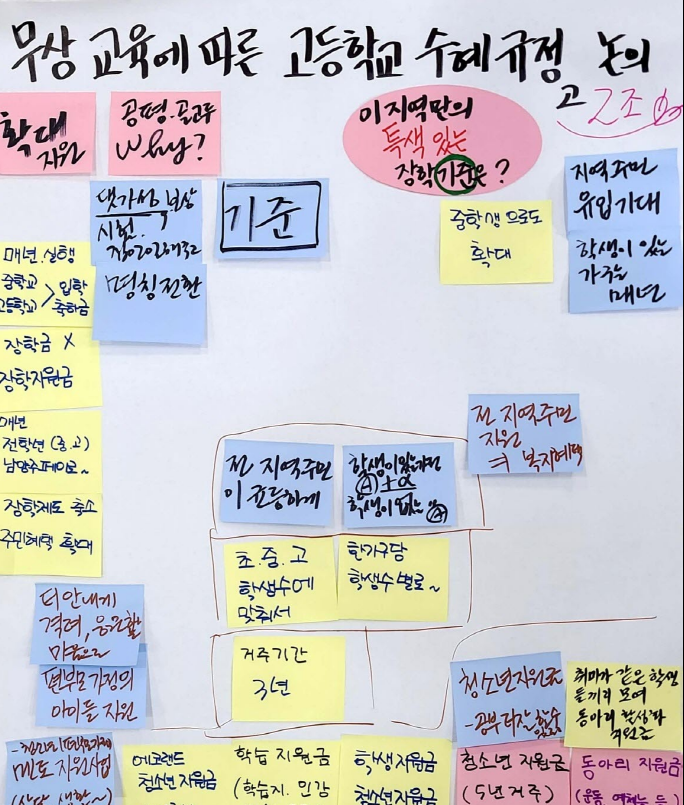 무상 교육에 따른 고등학교 수혜규정 논의
고 2조
확대
지원
공평·골고루
Why?
이 지역만의
특색 있는
장학기준은?
지역주민
유입기대
학생이 있는
가구는
매년
중학생으로도
확대
댓가성 보상
시험.
기준
명칭전환
매년 실행
중학교
고등학교 > 입학
축하금
장학금 X
장학지원금
매년
전학년 (중,고)
남양주페이로~
장학제도 축소
주민혜택 확대
전 지역주민
지원
복지혜택
전 지역주민
이 균등하게
학생이있는가정
Ⓐ+α
학생이 없는 Ⓐ
초.중.고
학생수에
맞춰서
한가구당
학생수별로~
거주기간
3년
티안내게
격려, 응원할
마음으로
편부모가정의
아이들 지원
청소년지원금
취미가 같은 학생
들끼리 모여
동아리 활성화
지원금
지원사업
에코랜드
청소년 지원금
학습 지원금
(학습지. 인강
학생지원금
청소년지원금
청소년 지원금
(5년거주)
동아리 지원금